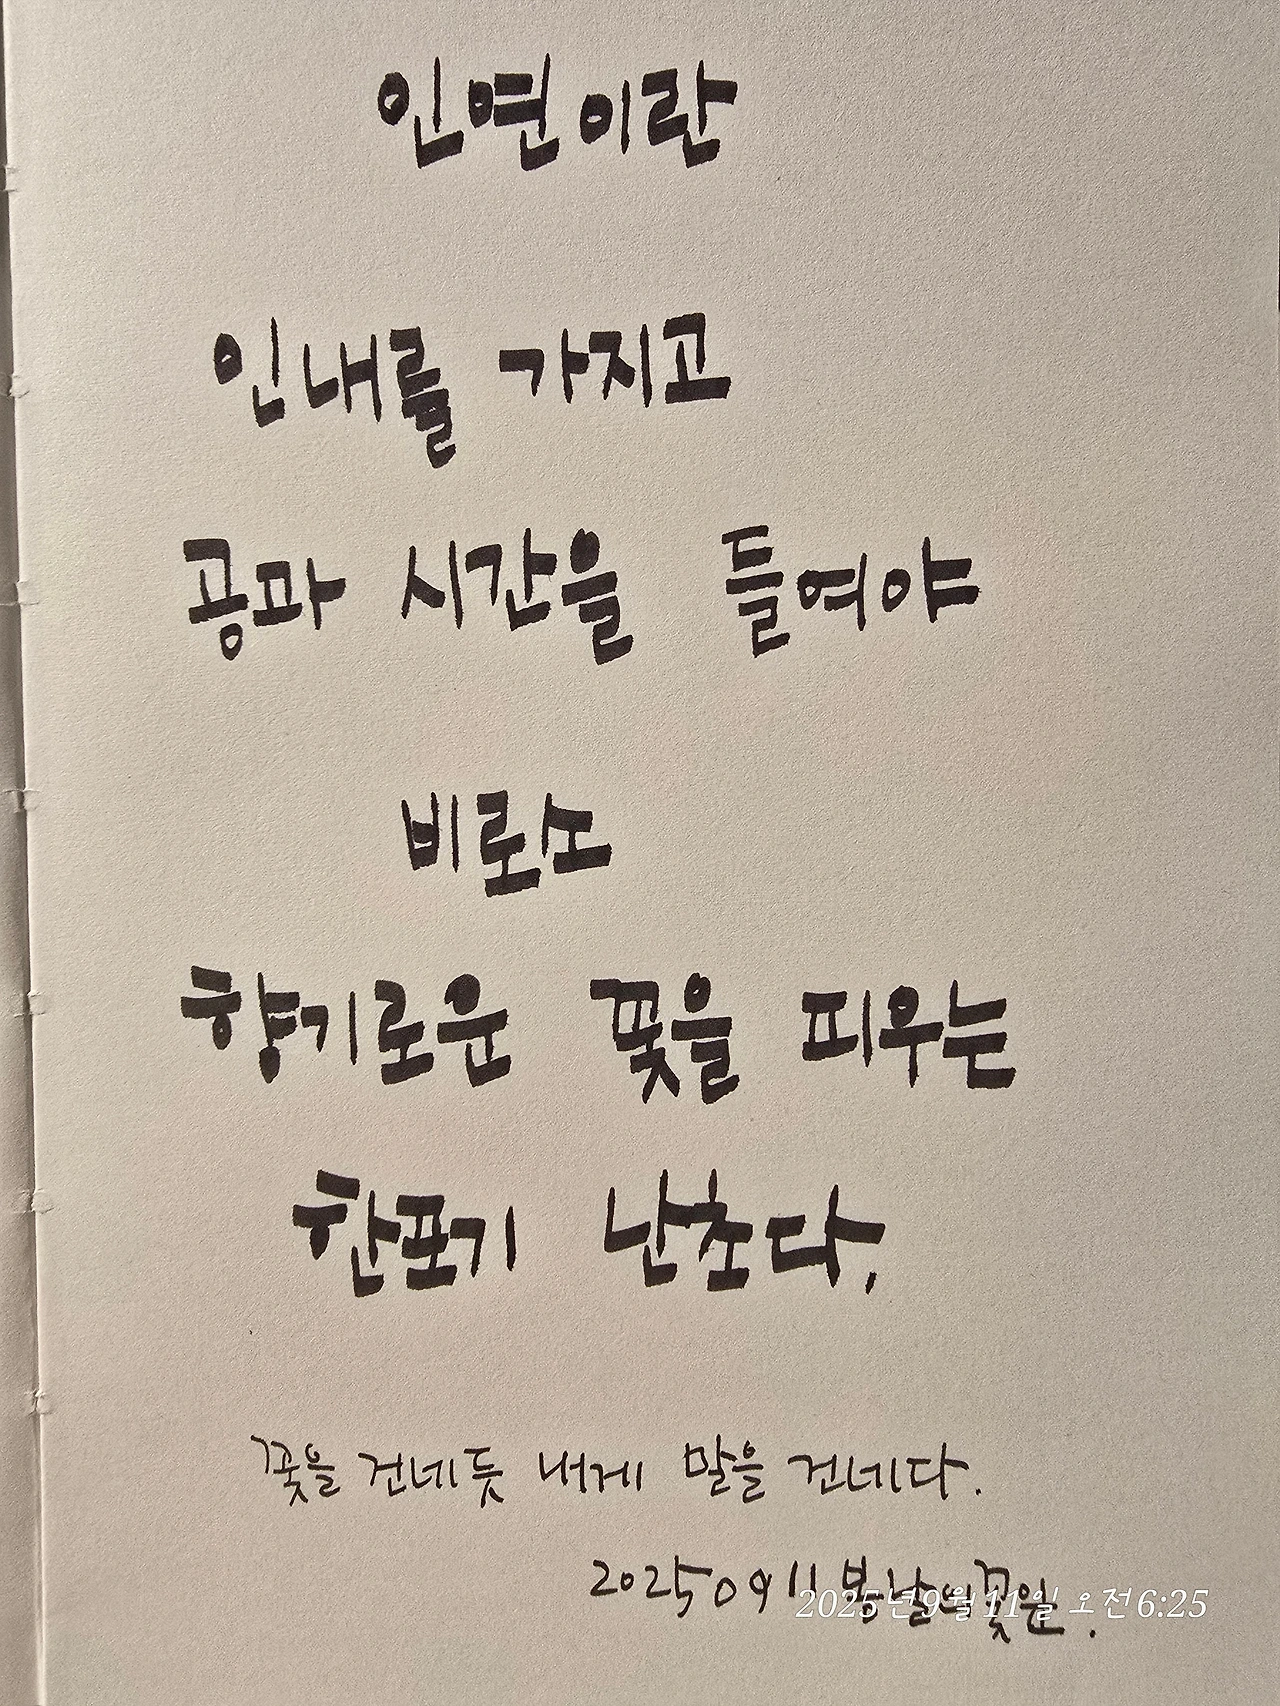 인연이란
인내를 가지고
공과 시간을 들여야
비로소
향기로운 꽃을 피우는
한포기 난초다.
꽃을 건네듯 내게 말을 건네다.
20250911 봄날의꽃잎.
2025년 9월 11일 오전 6:25